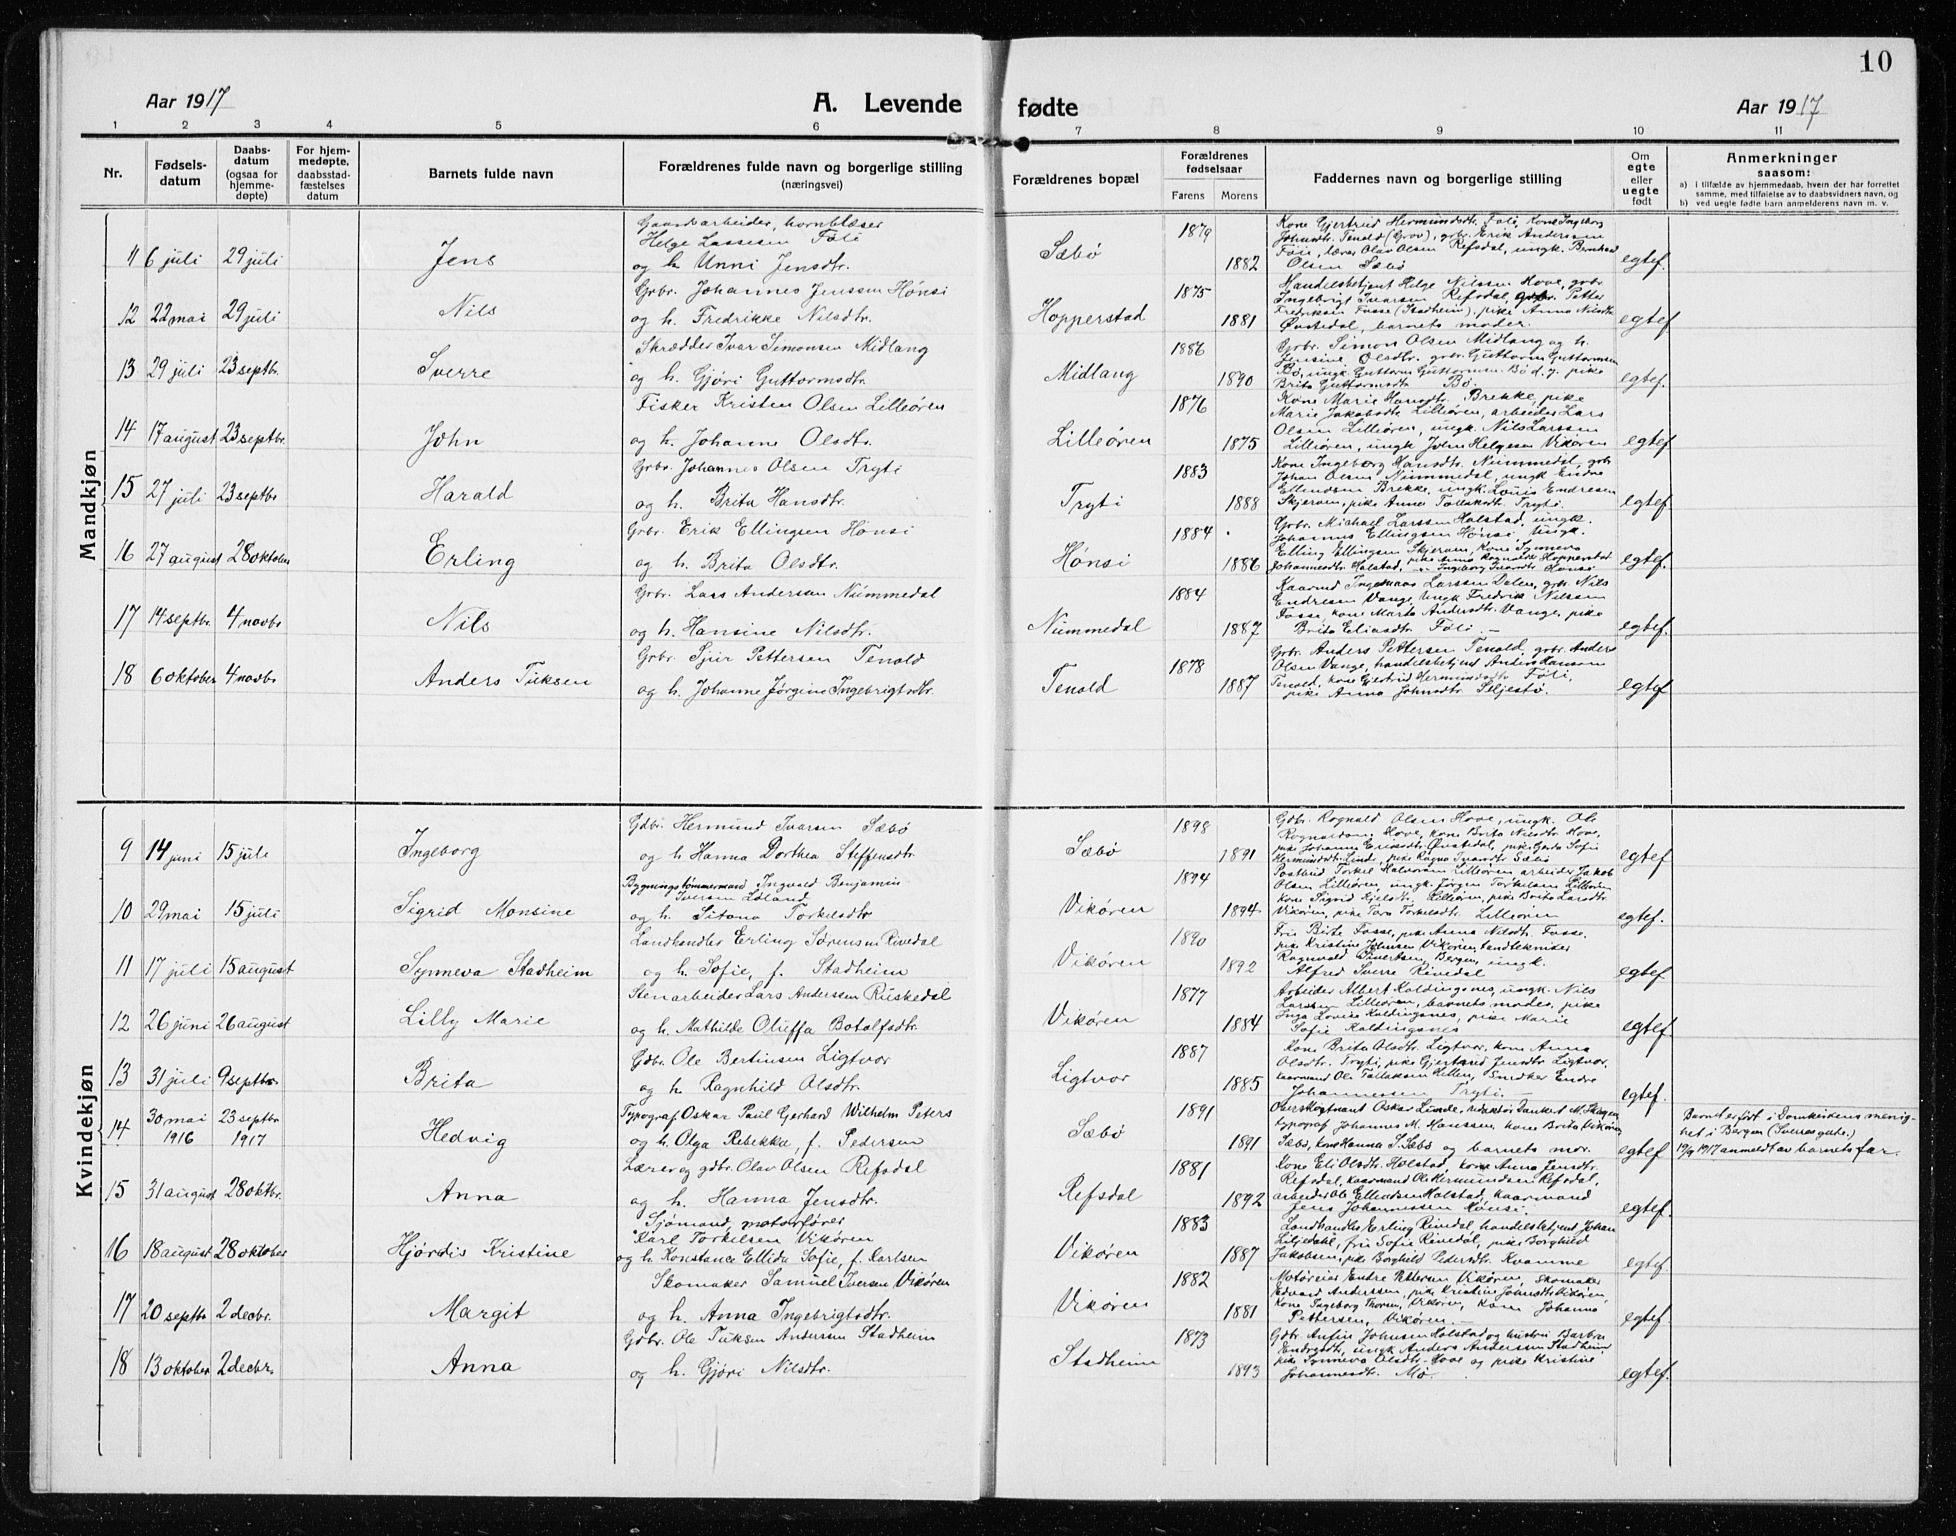 10
Aar 1917
A. Levende fødte
Aar 1917
1 2 3 4 5 6 7 8 9 10 11
Nr.
Fødsels-
datum
Daabs-
datum
(ogsaa for
hjemme-
døpte)
For hjem-
medøpte,
daabsstad-
fæstelses
datum
Barnets fulde navn
Forældrenes fulde navn og borgerlige stilling
(næringsvei)
Forældrenes bopæl
Forældrenes
fødselsaar
Farens Morens
Faddernes navn og borgerlige stilling
Om
egte
eller
uegte
født
Anmerkninger
saasom:
a) i tilfælde av hjemmedaab, hvem der har forrettet
samme, med tilføielse av to daabsvidners navn, og
b) ved uegte fødte barn anmelderens navn m. v.
Mandkjøn
Gaardsarbeider, hornblæser
Helge Lassesen Føli
11 6 juli 29 juli Jens og h. Unni Jensdtr. Sæbø 1879 1882 egtef.
Kone Gjertrud Hermundsdtr. Føli, Kone Ingeborg
Johnsdtr. Tenold (Grov), grbr. Erik Anderssen
Føli, lærer Olav Olsen Refsdal, ungk. Bernhard
Olsen Sæbø
Grbr. Johannes Jenssen Hønsi
12 22 mai 29 juli Nils og h. Fredrikke Nilsdtr. Hopperstad 1875 1881 egtef.
Handelsbetjent Helge Nilssen Hove, grbr.
Ingebrigt Ivarsen Refsdal, grbr. Petter
Fredriksen Fosse (Stadheim), pike Anna Nilsdtr.
Øvstedal, barnets moder.
Skrædder Ivar Simonsen Midlang
13 29 juli 23 septbr. Sverre og h. Gjøri Guttormsdtr. Midlang 1886 1890 egtef.
Grbr. Simon Olsen Midlang og h.
Jensine Olsdtr. grbr. Guttorm Guttormsen
Bø, ungk. Guttorm Guttormsen Bø d. y. pike
Brita Guttormsdtr. Bø.
Fisker Kristen Olsen Lilleøren
14 17 august 23 septbr. John og h. Johanne Olsdtr. Lilleøren 1876 1875 egtef.
Kone Marie Hansdtr. Brekke, pike
Marie Jakobsdtr. Lilleøren, arbeider Lars
Olsen Lilleøren, ungk. Nils Larssen
Lilleøren, ungk. John Helgesen Vikøren
Grbr. Johannes Olsen Tryti
15 27 juli 23 septbr. Harald og h. Brita Hansdtr. Tryti 1883 1888 egtef.
Kone Ingeborg Hansdtr. Nummedal, grbr.
Johan Olsen Nummedal, ungk. Endre
Ellendsen Brekke, ungk. Louis Endresen
Skjerven, pike Anna Tollaksdtr. Tryti.
Grbr. Erik Ellingsen Hønsi
16 27 august 28 oktober Erling og h. Brita Olsdtr. Hønsi 1884 1886 egtef.
Grbr. Michael Larssen Holstad, ungk.
Johannes Ellingsen Hønsi, ungk.
Elling Ellingsen Skjerven, Kone Synneva
Johannesdtr. Holstad, pike Anna Ragnaldsdtr. Hopperstad
Grbr. Lars Andersen Nummedal
17 14 septbr. 4 novbr. Nils og h. Hansine Nilsdtr. Nummedal 1884 1887 egtef.
Kaarmd Ingemann Larssen Dalen, grbr. Nils
Endresen Vange, ungk. Fredrik Nilssen
Fosse, kone Marta Andersdtr. Vange, pike
Brita Eliasdtr. Føli. —
Grbr. Sjur Pettersen Tenold
18 6 oktober 4 novbr. Anders Tuksen og h. Johanne Jørgine Ingebrigtsdtr. Tenold 1878 1887 egtef.
Grbr. Anders Pettersen Tenold, grbr. Anders
Olsen Vange, handelsbetjent Anders Hanssen
Tenold, kone Gjertrud Hermundsdtr. Føli,
pike Anna Johnsdtr. Seljestø.
Kvindekjøn
Gdbr. Hermund Ivarsen Sæbø
9 14 juni 15 juli Ingeborg og h. Hanna Dorthea Steffensdtr. Sæbø 1898 1891 egtef.
Gdbr. Rognald Olsen Hove, ungk. Ole
Rognaldsen Hove, kone Brita Nilsdtr. Hove,
pike Johanna Eriksdtr. Øvstedal, pike Gerda Sofie
Hermundsdtr. Linde, pike Ragna Ivarsdtr. Sæbø
Bygningstømmermand Ingvald Benjamin
Iversen Loland
10 29 mai 15 juli Sigrid Monsine og h. Sitona Torkelsdtr. Vikøren 1894 1894 egtef.
Postbud Torkel Halvorsen Lilleøren arbeider Jakob
Olsen Lilleøren, ungk. Jørgen Torkelsen Lilleøren
Kone Sigrid Kjelsdtr. Lilleøren, pike Brita Larsdtr.
Vikøren, pike Tora Torkelsdtr. Lilleøren
Landhandler Erling Sørensen Rivedal
11 17 juli 15 august Synneva Stadheim og h. Sofie, f. Stadheim Vikøren 1890 1892 egtef.
Fru Birte Fosse, pike Anna Nilsdtr. Fosse,
pike Kristine Johnsen Vikøren, tandtekniker
Rognvald Sivertsen, Bergen, ungk.
Alfred Sverre Rivedal
Stenarbeider Lars Anderssen Ruskedal
12 26 juni 26 august Lilly Marie og h. Mathilde Oluffa Botolfsdtr. Vikøren 1877 1884 egtef.
Arbeider Albert Koldingsnes, ungk. Nils
Larssen Lilleøren, barnets moder, pike
Inga Lovise Koldingsnes, pike Marie
Sofie Koldingsnes
Gdbr. Ole Bertinsen Ligtvor
13 31 juli 9 septbr. Brita og h. Ragnhild Olsdtr. Ligtvor 1887 1885 egtef.
Kone Brita Olsdtr. Ligtvor, kone Anna
Olsdtr. Tryti, pike Gjertrud Jensdtr. Ligtvor,
kaarmand Ole Tollaksen Hellen, Smedker Endre
Johannessen Tryti. —
Typograf Oskar Paul Gerhard Wilhelm Peters
14 30 mai 1916 23 septbr. 1917 Hedvig og h. Olga Rebekka, f. Pedersen Sæbø 1891 1891 egtef
Overskogtnant Oskar Lunde, redaktør Dankert M. Skagen,
typograf Johannes M. Hanssen, kone Brita Vikøren,
Sæbø, kone Hanna S. Sæbø og barnets mor.
Barnet er født i Domkirkens menig-
het i Bergen (Sverresgate.)
19/9 1917 anmeldt av barnets far.
Lærer og gdbr. Olav Olsen Refsdal
15 31 august 28 oktbr. Anna og h. Hanna Jensdtr. Refsdal 1881 1892 egtef.
Kone Eli Olsdtr. Holstad, kone Anna Jensdtr.
Refsdal, kaarmand Ole Hermundsen Refsdal,
arbeider Ole Ellendsen Holstad, kaarmand
Jens Johannessen Hønsi.
Sjømand, motorfører
Karl Torkilsen Vikøren
16 18 august 28 oktober Hjørdis Kristine og h. Konstance Ellida Sofie, f. Karlsen Vikøren 1883 1887 egtef.
Landhandler Erling Rivedal, handelsbetjent Johan
Liljedahl, fru Sofie Rivedal, pike Borghild
Jakobsen, pike Borghild Pedersdtr. Kvamme
Skomaker Samuel Iversen Vikøren
17 20 septbr. 2 decbr. Margit og h. Anna Ingebrigtsdtr. Vikøren 1882 1881 egtef.
Motoreier Endre Pettersen Vikøren, Skomaker
Edvard Anderssen, pike Kristine Johnsdtr. Vikøren,
Kone Ingeborg Thorsen, Vikøren, kone Johanna
Pettersen, Vikøren. —
Gdbr. Ole Tuksen Anderssen Stadheim
18 13 oktober 2 decbr. Anna og h. Gjøri Nilsdtr. Stadheim 1873 1893 egtef.
Gdbr. Anfin Johnsen Holstad og hustru Barbra
Endresdtr., ungk. Anders Anderssen Stadheim,
pike Synneva Olsdtr. Hove og pike Kristine
Johannesdtr. Mo.